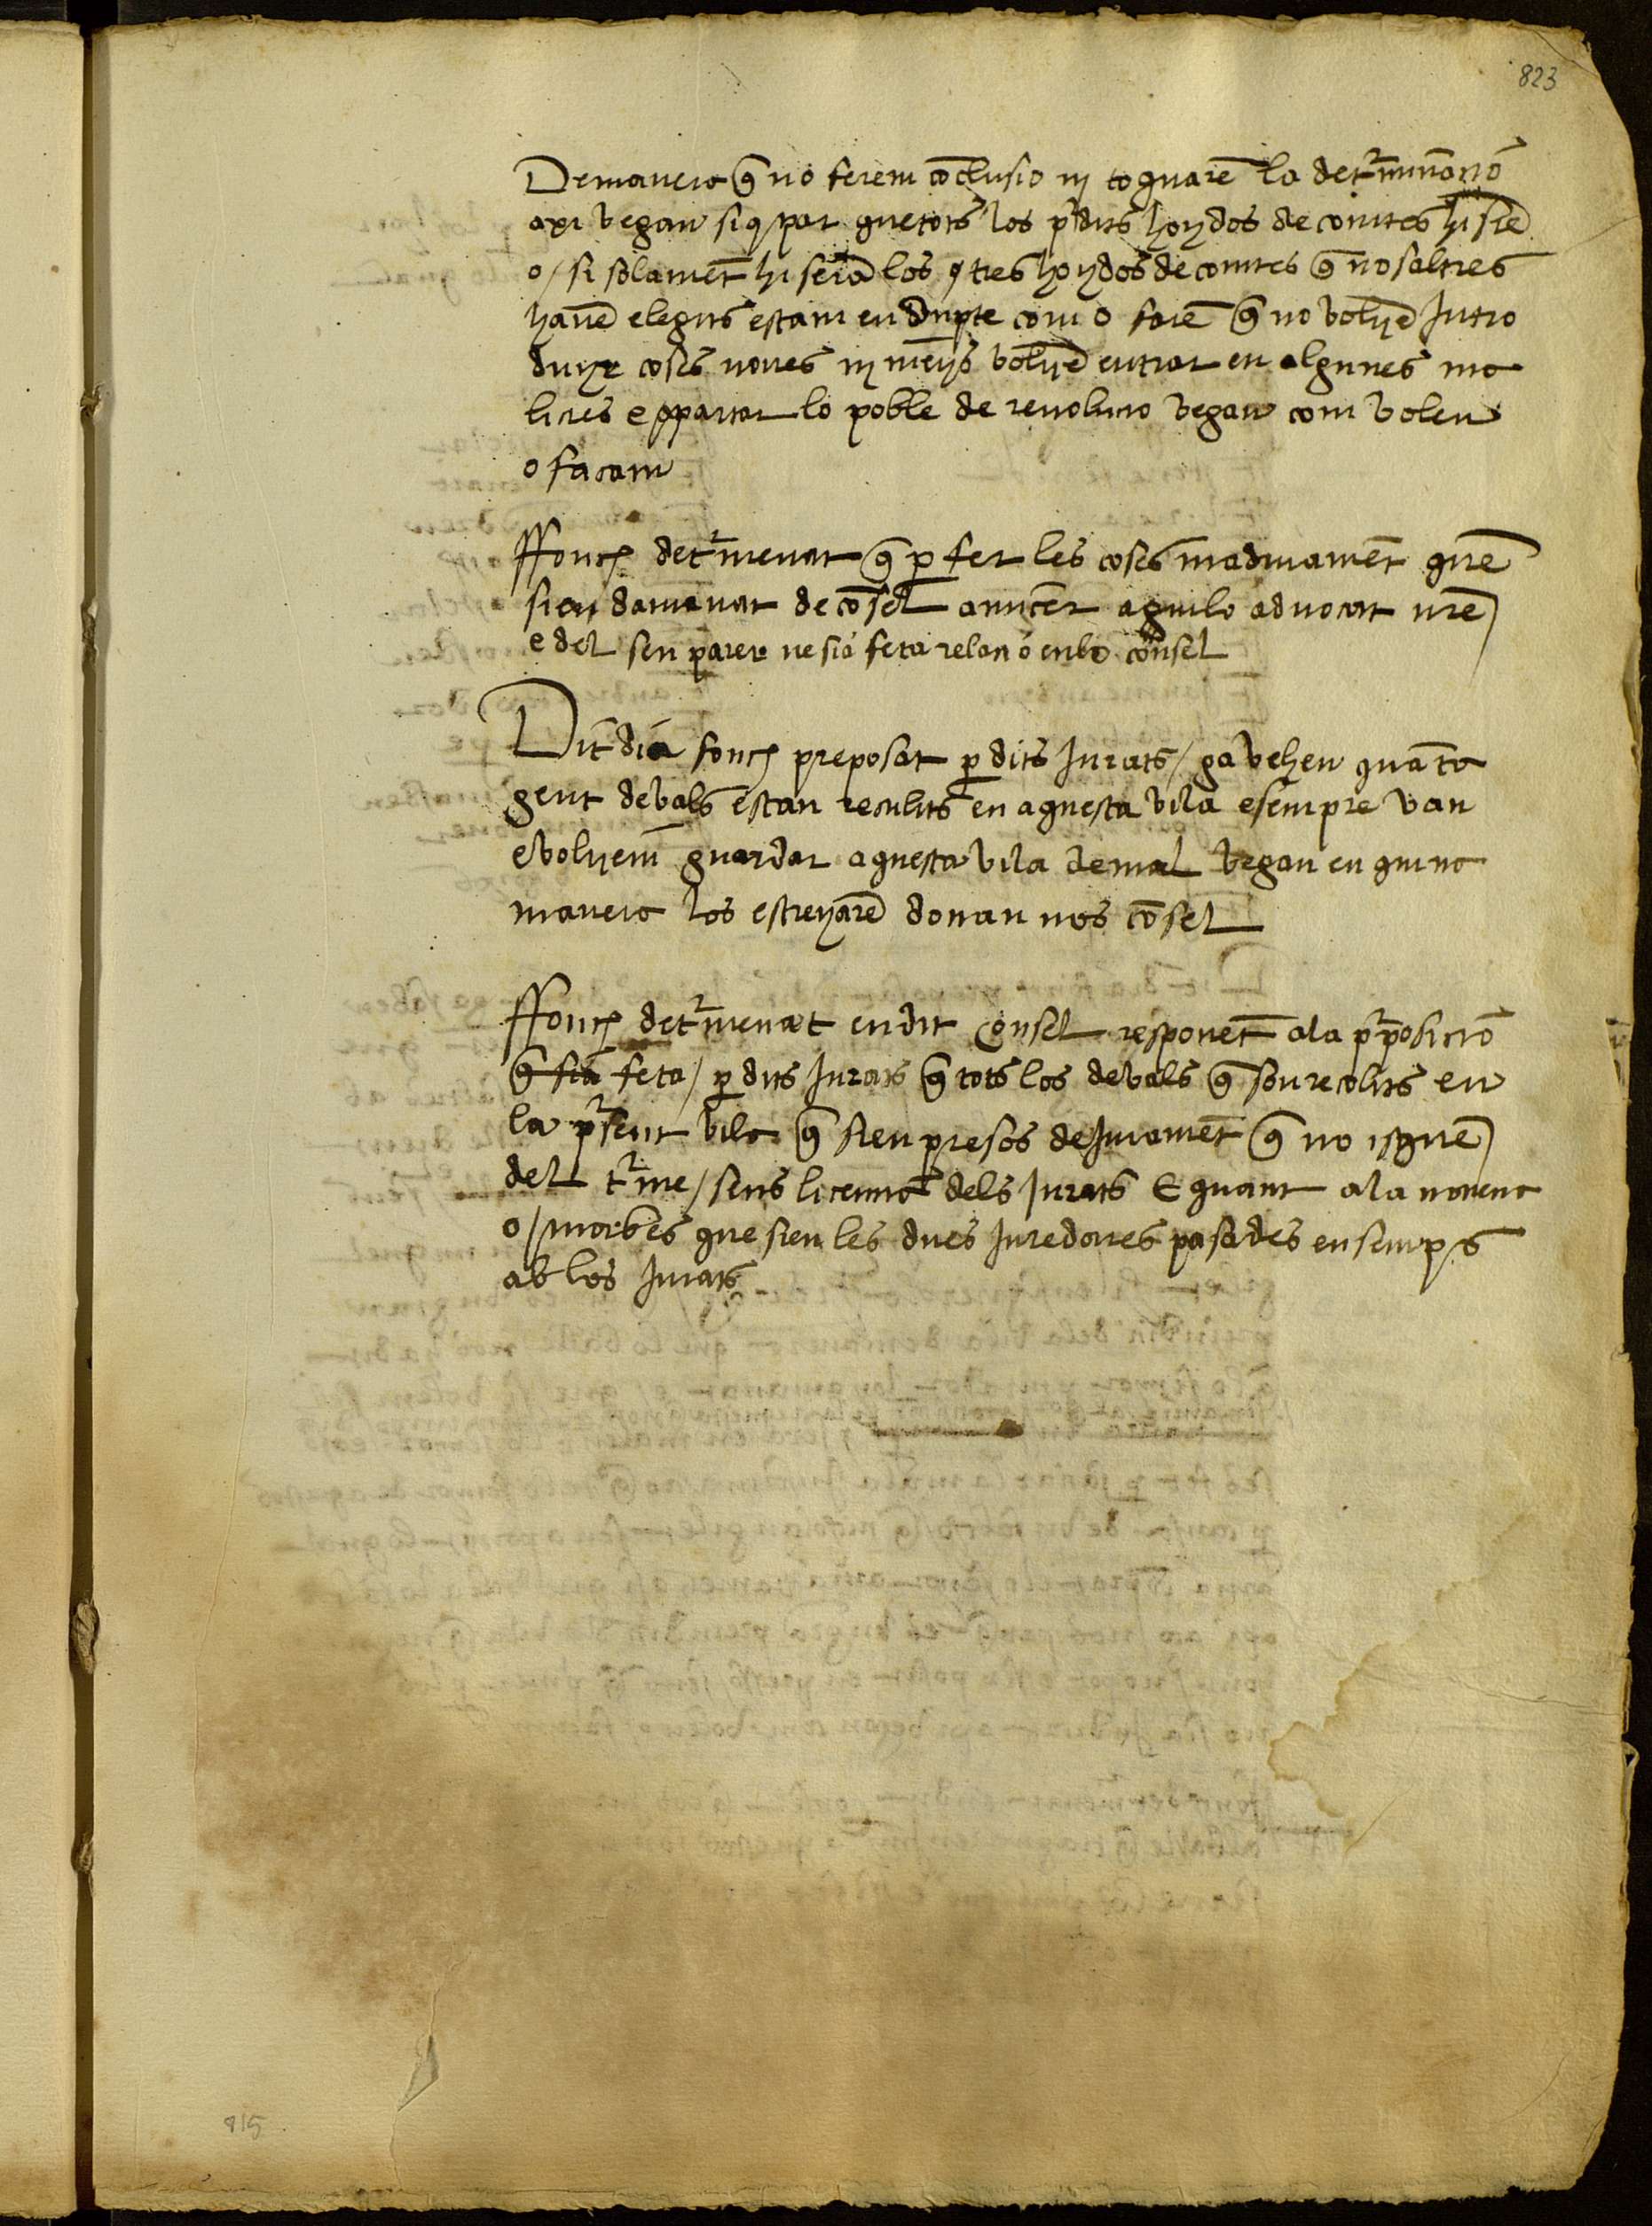 823
Demanera q̃ no ferem cõclusio ni toquarẽ la det^rminacio
axi vegau siq par que tots los p^rdits hoydos de comtes hi siẽ
o / si solamẽt hi seriã los tres hoydos de comtes q̃ nosaltres
havẽ elegits estam en dupte com o farẽ q̃ no volyẽ Intro
duyr coses noves ni mẽys volyẽ entrar en algunes ma
licies e appartar lo poble de revolucio vegau com voleu
o façam
ffonch det^rmenat q̃ p fer les coses maduramẽt q̃ne
sien damanat de cõsel amicer aguilo advocat nrẽ
e del seu parer ne sia feta relacio en lo cõnsel
Dit dia fonch preposat p dits Jurats / ga vehen quãta
gent de vals estan reculits en aquesta vila e sempre van
e volyem guardar aquesta vila de mal vegau en quina
manera los estreyarẽ donau nos cõsel
ffonch det^rmenat en dit Consel responẽt a la p^rposicio
q̃ sia feta / p dits Jurats q̃ tots los de vals q̃ son recolits en
la p^rsent vila q̃ sien presos de Juramẽt q̃ no isquẽ
del t^rme / sens licencia dels Jurats E quant a la novena
o / morbes que sien les dues Juredories pasades ensemps
ab los Jurats
815